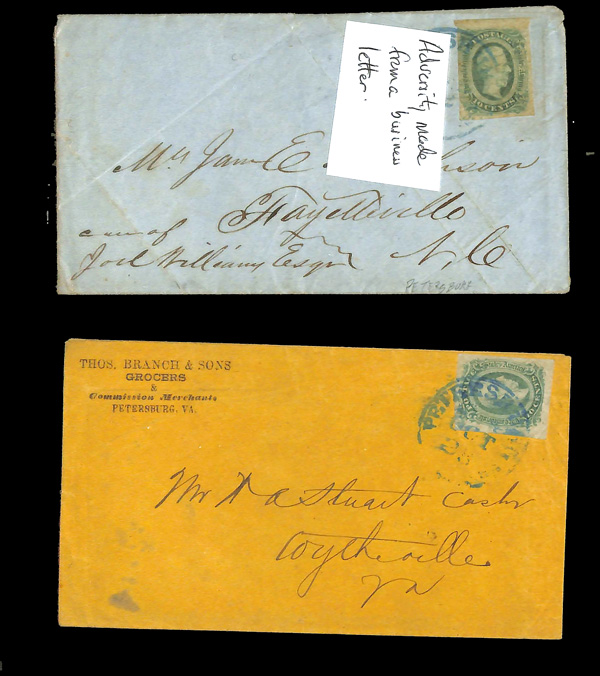 Adversity made
from a business
letter.
POSTAGE
TEN CENTS
Mrs Jane E
Fayetteville
care of
Joel Williams Esqr N, C
PETERSBURG
THOS. BRANCH & SONS
GROCERS
&
Commission Merchants
PETERSBURG, VA.
OCT
Mr A Stuart Cashr
Wytheville
Va